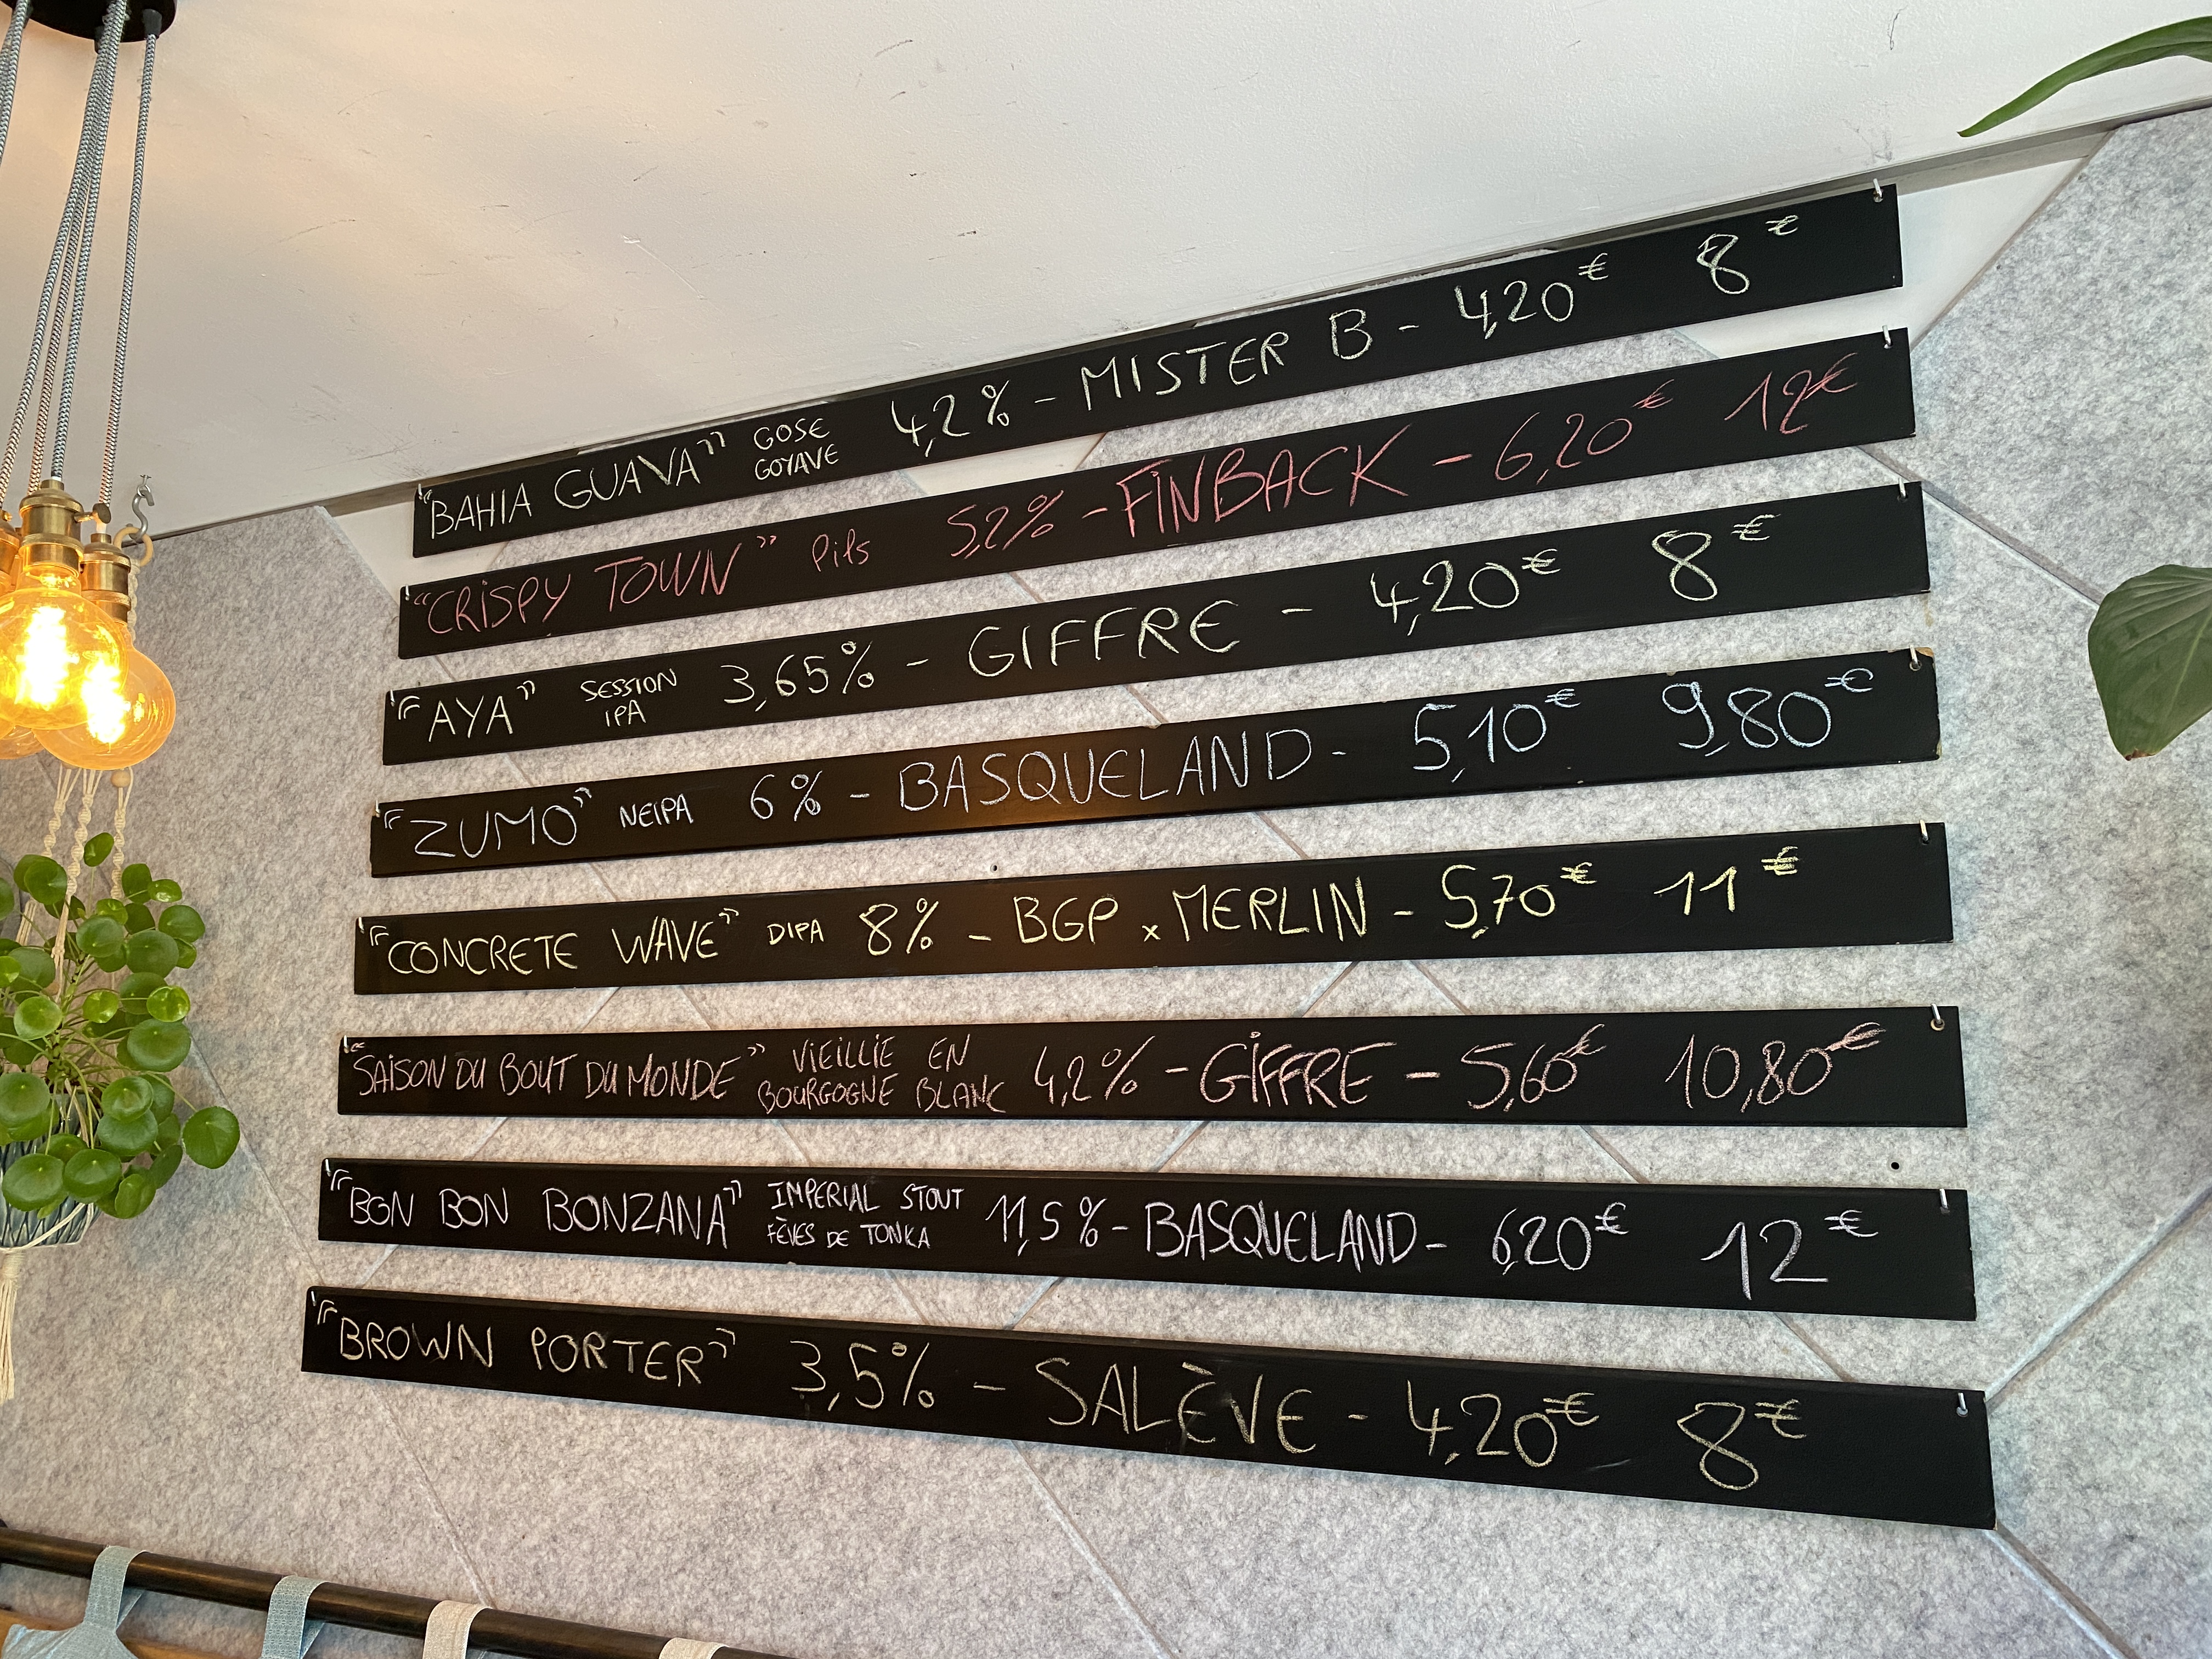 "BAHIA GUAVA" GOSE GOYAVE 4,2% - MISTER B - 4,20€ 8€
"CRISPY TOWN" Pils 5,2% - FINBACK - 6,20€ 12€
"AYA" SESSION IPA 3,65% - GIFFRE - 4,20€ 8€
"ZUMO" NEIPA 6% - BASQUELAND - 5,10€ 9,80€
"CONCRETE WAVE" DIPA 8% - BGP x MERLIN - 5,70€ 11€
"SAISON DU BOUT DU MONDE" VIEILLIE EN BOURGOGNE BLANC 4,2% - GIFFRE - 5,60€ 10,80€
"BON BON BONZANA" IMPERIAL STOUT FÈVES DE TONKA 11,5% - BASQUELAND - 6,20€ 12€
"BROWN PORTER" 3,5% - SALÈVE - 4,20€ 8€